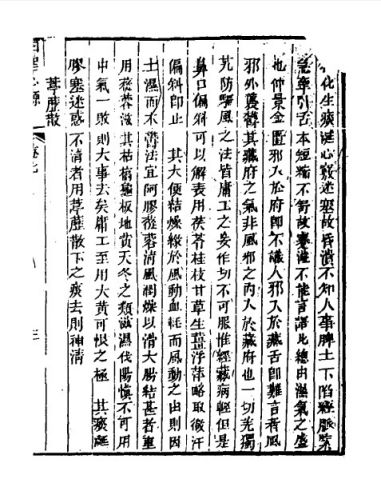 化生痰涎心竅迷塞故昏憒不知人事脾土下陷經脈紫
急牽引舌本短縮不舒故蹇澀不能言語此總由濕氣之盛
也仲景金匱邪入於府即不識人邪入於藏舌即難言者風
邪外襲鬱其藏府之氣非風邪之內入於藏府也一切羌獨
艽防驅風之法皆庸工之妄作切不可服惟經藏病輕但是
鼻口偏斜可以解表用茯苓桂枝甘草生薑浮萍略取微汗
偏斜即止　其大便結燥緣於風動血耗而風動之由則因
土濕而木鬱法宜阿膠蓯蓉清風潤燥以滑大腸結甚者重
用蓯蓉滋其枯槁龜板地黃天冬之類滋濕伐陽慎不可用
中氣一敗則大事去矣庸工至用大黃可恨之極　其痰涎
膠塞迷惑不清者用葶藶散下之痰去則神清
葶藶散
卷七